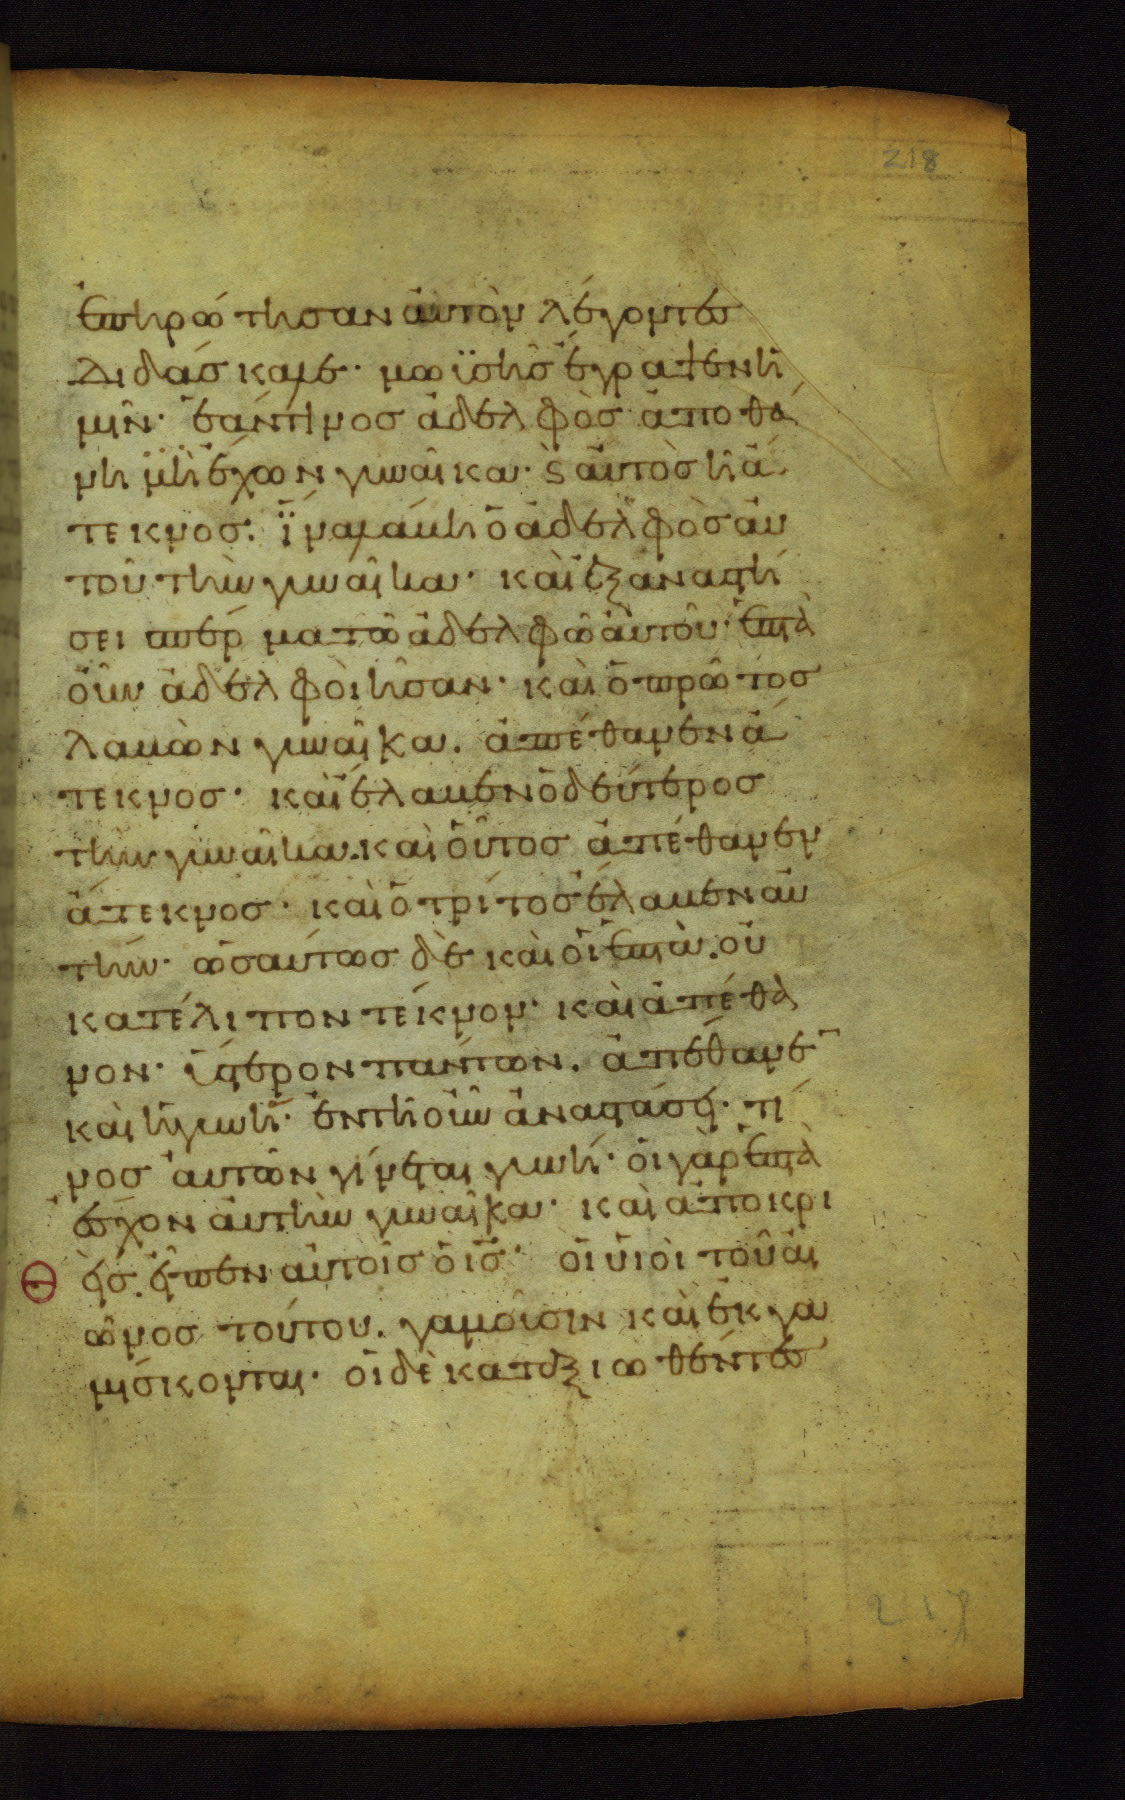 218
ἐπηρώτησαν αὐτὸν λέγοντες
Διδάσκαλε· μωϊσῆς ἔγραψεν ἡ
μῖν· ἐάν τινος ἀδελφὸς ἀποθά
νη μὴ ἔχων γυναῖκα· ϛ αὐτὸς ἢ ἄ
τεκνος· ἵνα λάβη ὁ ἀδελφὸς αὐ
τοῦ τὴν γυναῖκα· καὶ ἐξαναστή
σει σπέρμα τῶ ἀδελφῶ αὐτοῦ· ἑπτὰ
οὖν ἀδελφοὶ ἦσαν· καὶ ὁ πρῶτος
λαβὼν γυναῖκα. ἀπέθανεν ἄ
τεκνος· καὶ ἔλαβεν ὁ δεύτερος
τὴν γυναῖκα. καὶ οὗτος ἀπέθανεν
ἄτεκνος· καὶ ὁ τρίτος ἔλαβεν αὐ
τήν· ὡσαύτως δὲ καὶ οἱ ἑπτὰ. οὐ
κατέλιπον τέκνον· καὶ ἀπέθα
νον· ὕστερον πάντων. ἀπέθανε
καὶ ἡ γυνή· ἐν τῆ οὖν ἀναστάσει· τί
νος αὐτῶν γίνεται γυνή· οἱ γὰρ ἑπτὰ
ἔσχον αὐτὴν γυναῖκα· καὶ ἀποκρι
θεὶς. εἶπεν αὐτοῖς ὁ ις· οἱ υἱοὶ τοῦ αἰ
ῶνος τούτου. γαμοῦσιν καὶ ἐκγα
μίσκονται· οἱ δὲ καταξιωθέντες
217